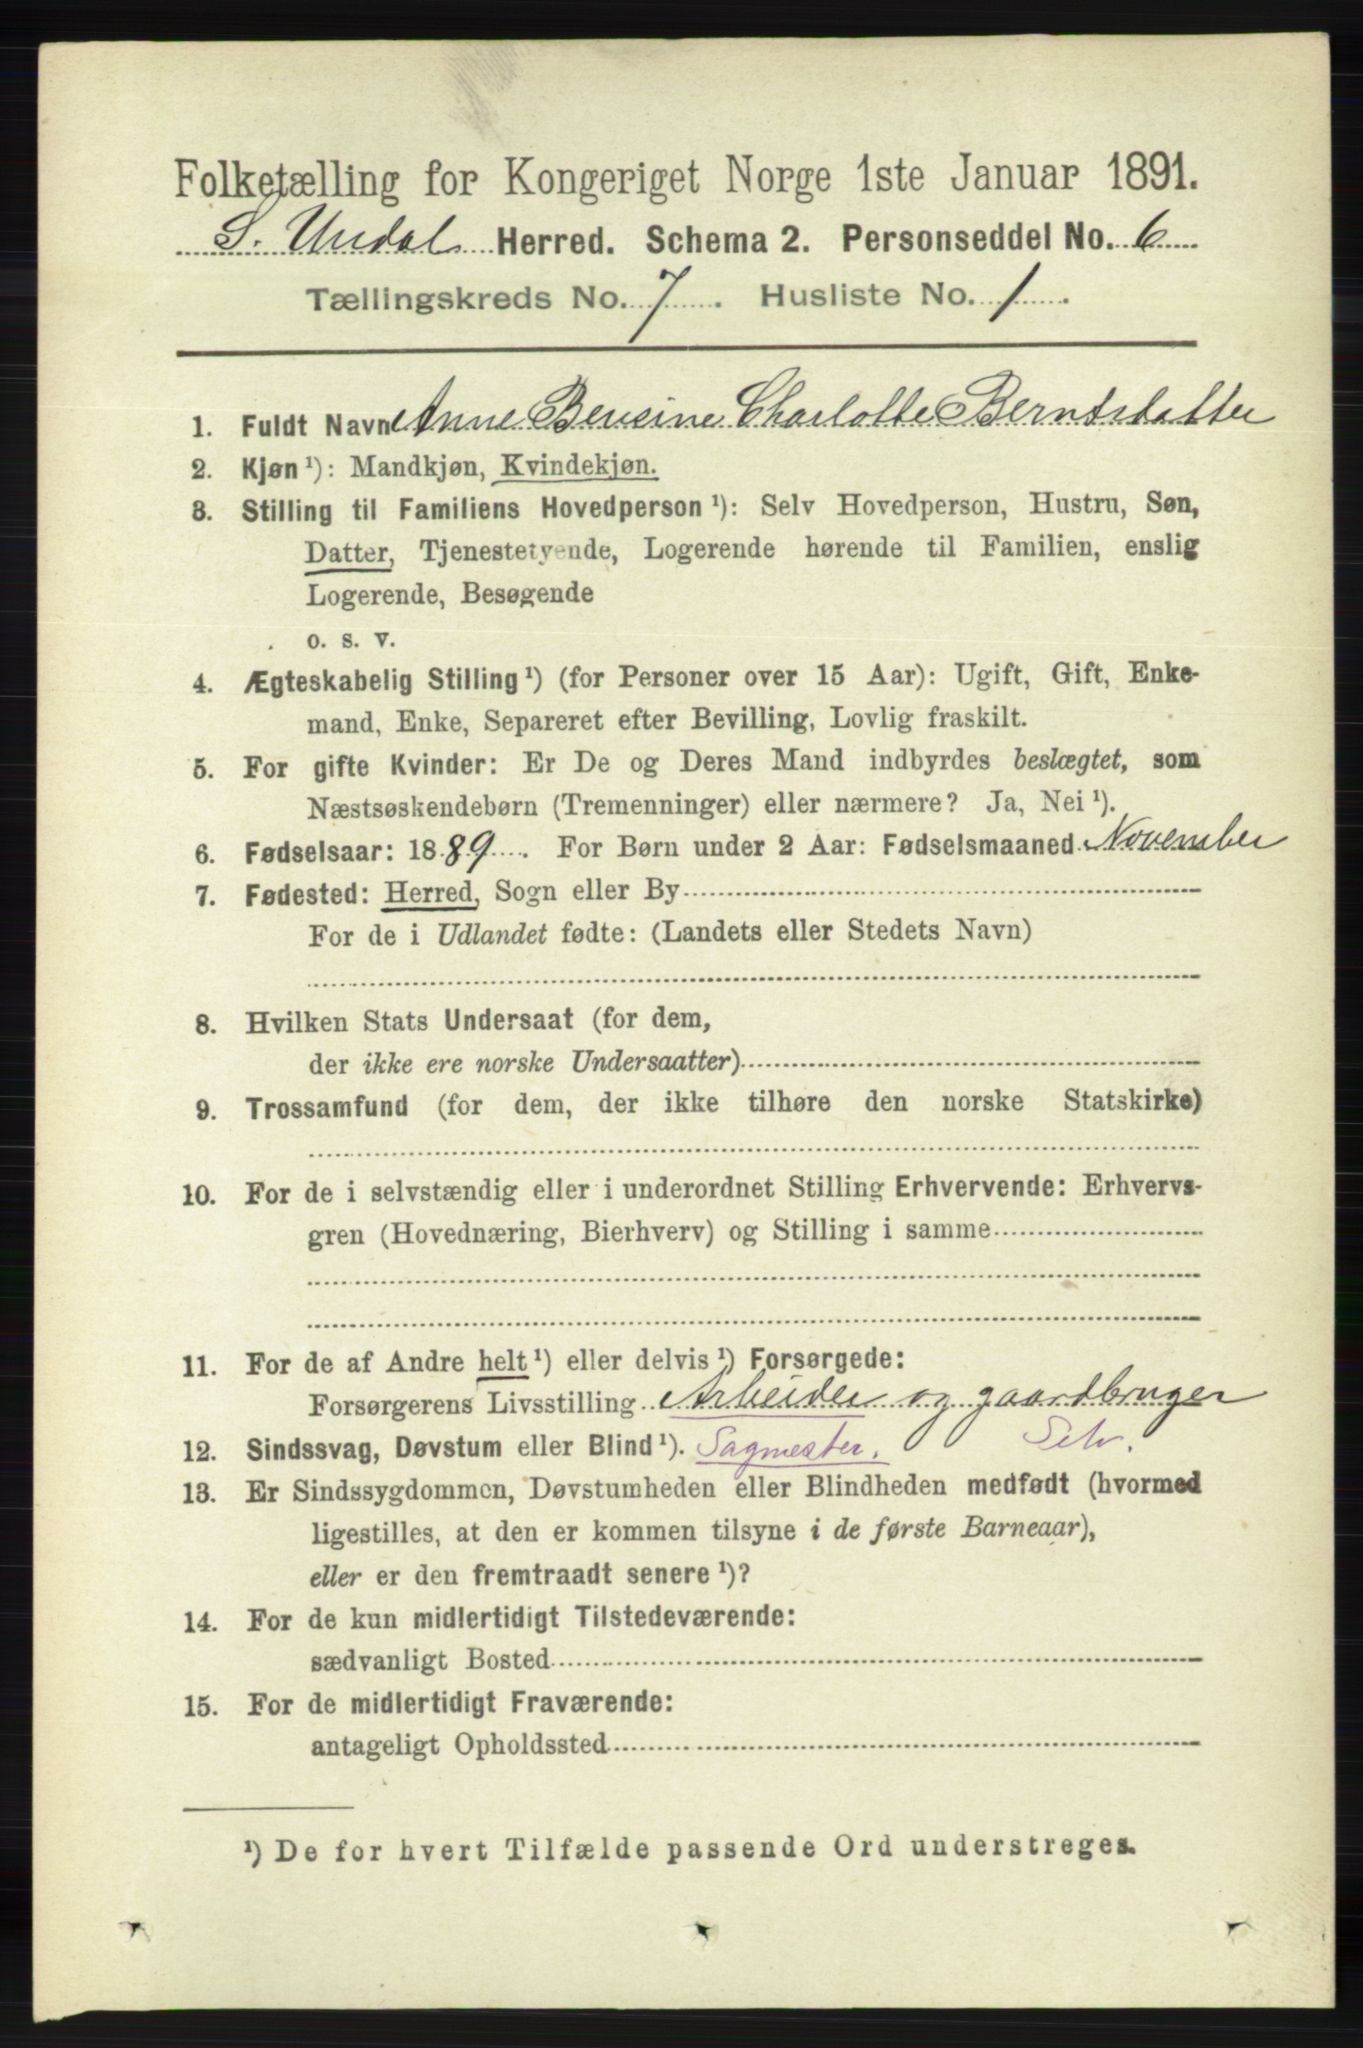 Folketælling for Kongeriget Norge 1ste Januar 1891.
S. Undal Herred. Schema 2. Personseddel No. 6
Tællingskreds No. 7. Husliste No. 1.
1. Fuldt Navn Anne Bersine Charlotte Berntsdatter
2. Kjøn ¹): Mandkjøn, Kvindekjøn.
3. Stilling til Familiens Hovedperson ¹): Selv Hovedperson, Hustru, Søn,
Datter, Tjenestetyende, Logerende hørende til Familien, enslig
Logerende, Besøgende
o. s. v.
4. Ægteskabelig Stilling ¹) (for Personer over 15 Aar): Ugift, Gift, Enke-
mand, Enke, Separeret efter Bevilling, Lovlig fraskilt.
5. For gifte Kvinder: Er De og Deres Mand indbyrdes beslægtet, som
Næstsøskendebørn (Tremenninger) eller nærmere? Ja, Nei ¹).
6. Fødselsaar: 1889. For Børn under 2 Aar: Fødselsmaaned November
7. Fødested: Herred, Sogn eller By
For de i Udlandet fødte: (Landets eller Stedets Navn)
8. Hvilken Stats Undersaat (for dem,
der ikke ere norske Undersaatter)
9. Trossamfund (for dem, der ikke tilhøre den norske Statskirke)
10. For de i selvstændig eller i underordnet Stilling Erhvervende: Erhvervs-
gren (Hovednæring, Bierhverv) og Stilling i samme
11. For de af Andre helt ¹) eller delvis ¹) Forsørgede:
Forsørgerens Livsstilling Arbeider og gaardbruger
12. Sindssvag, Døvstum eller Blind ¹). Sagmester. Selv.
13. Er Sindssygdommen, Døvstumheden eller Blindheden medfødt (hvormed
ligestilles, at den er kommen tilsyne i de første Barneaar),
eller er den fremtraadt senere ¹)?
14. For de kun midlertidigt Tilstedeværende:
sædvanligt Bosted
15. For de midlertidigt Fraværende:
antageligt Opholdssted
¹) De for hvert Tilfælde passende Ord understreges.